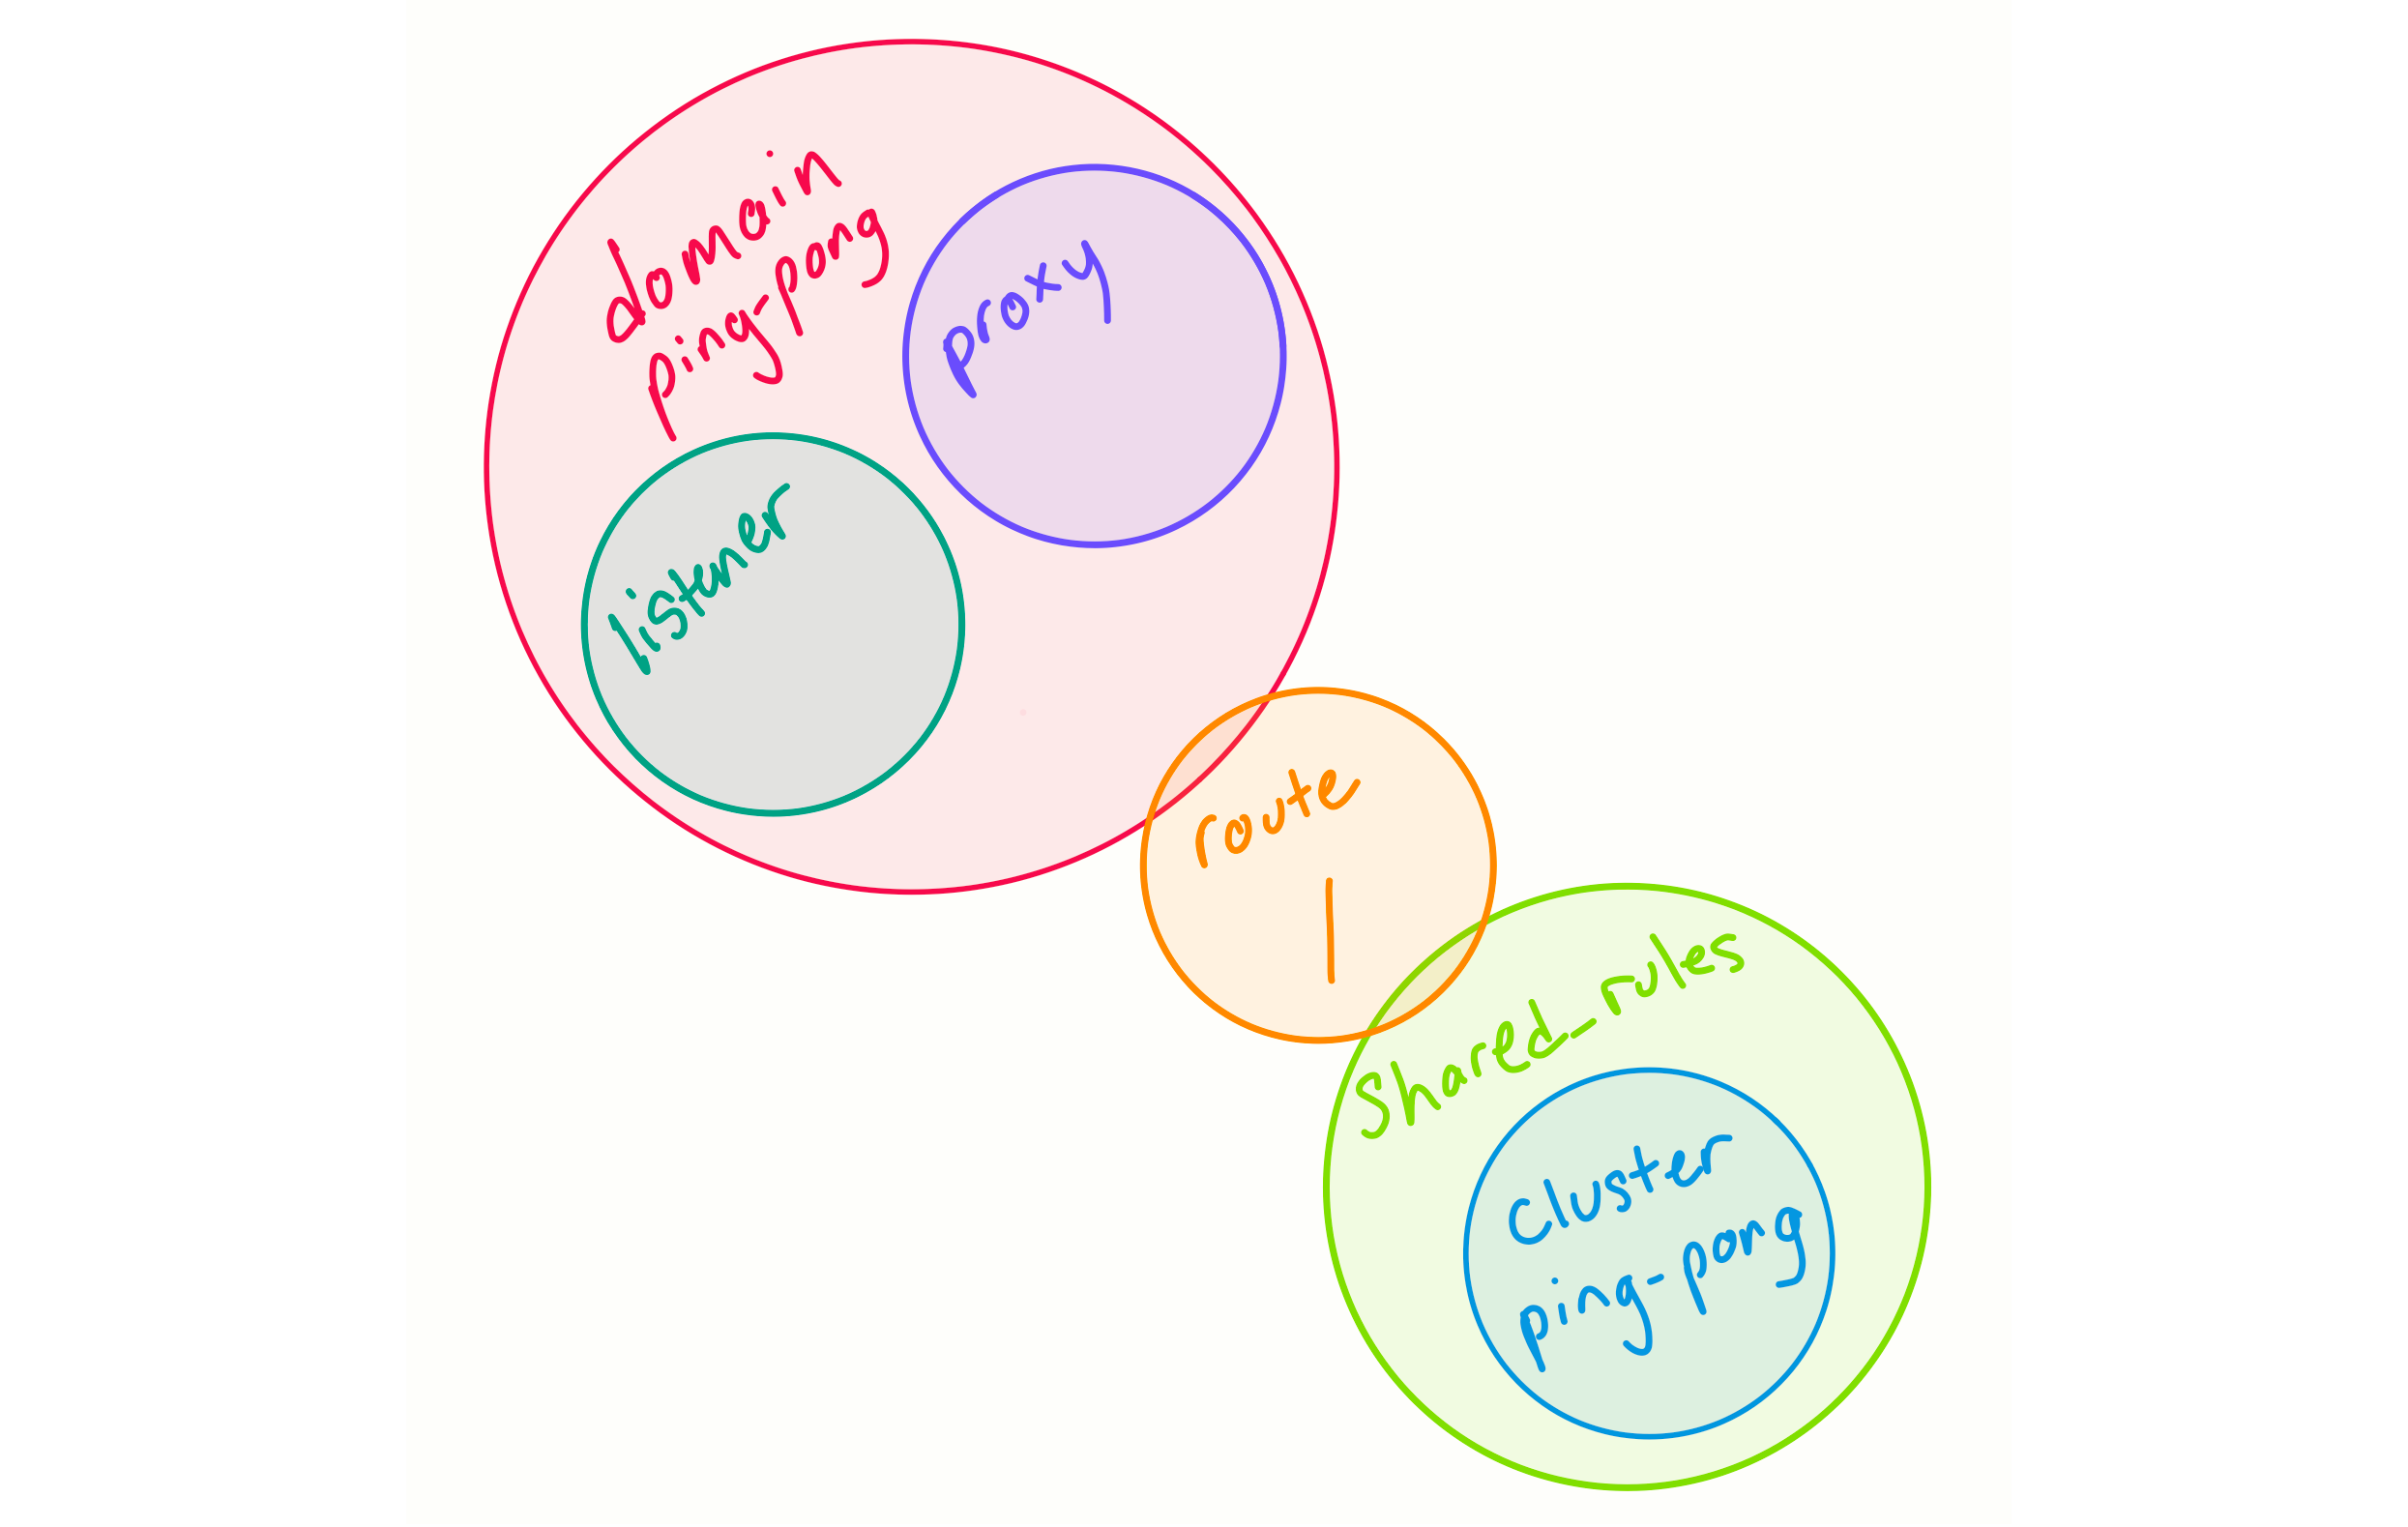 domain
ping-pong
proxy
listener
route
1
Shared_rules
Cluster
ping-pong